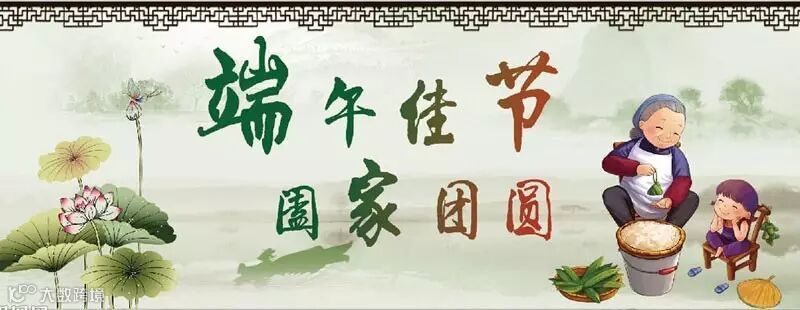 端午佳节
阖家团圆
大数跨境